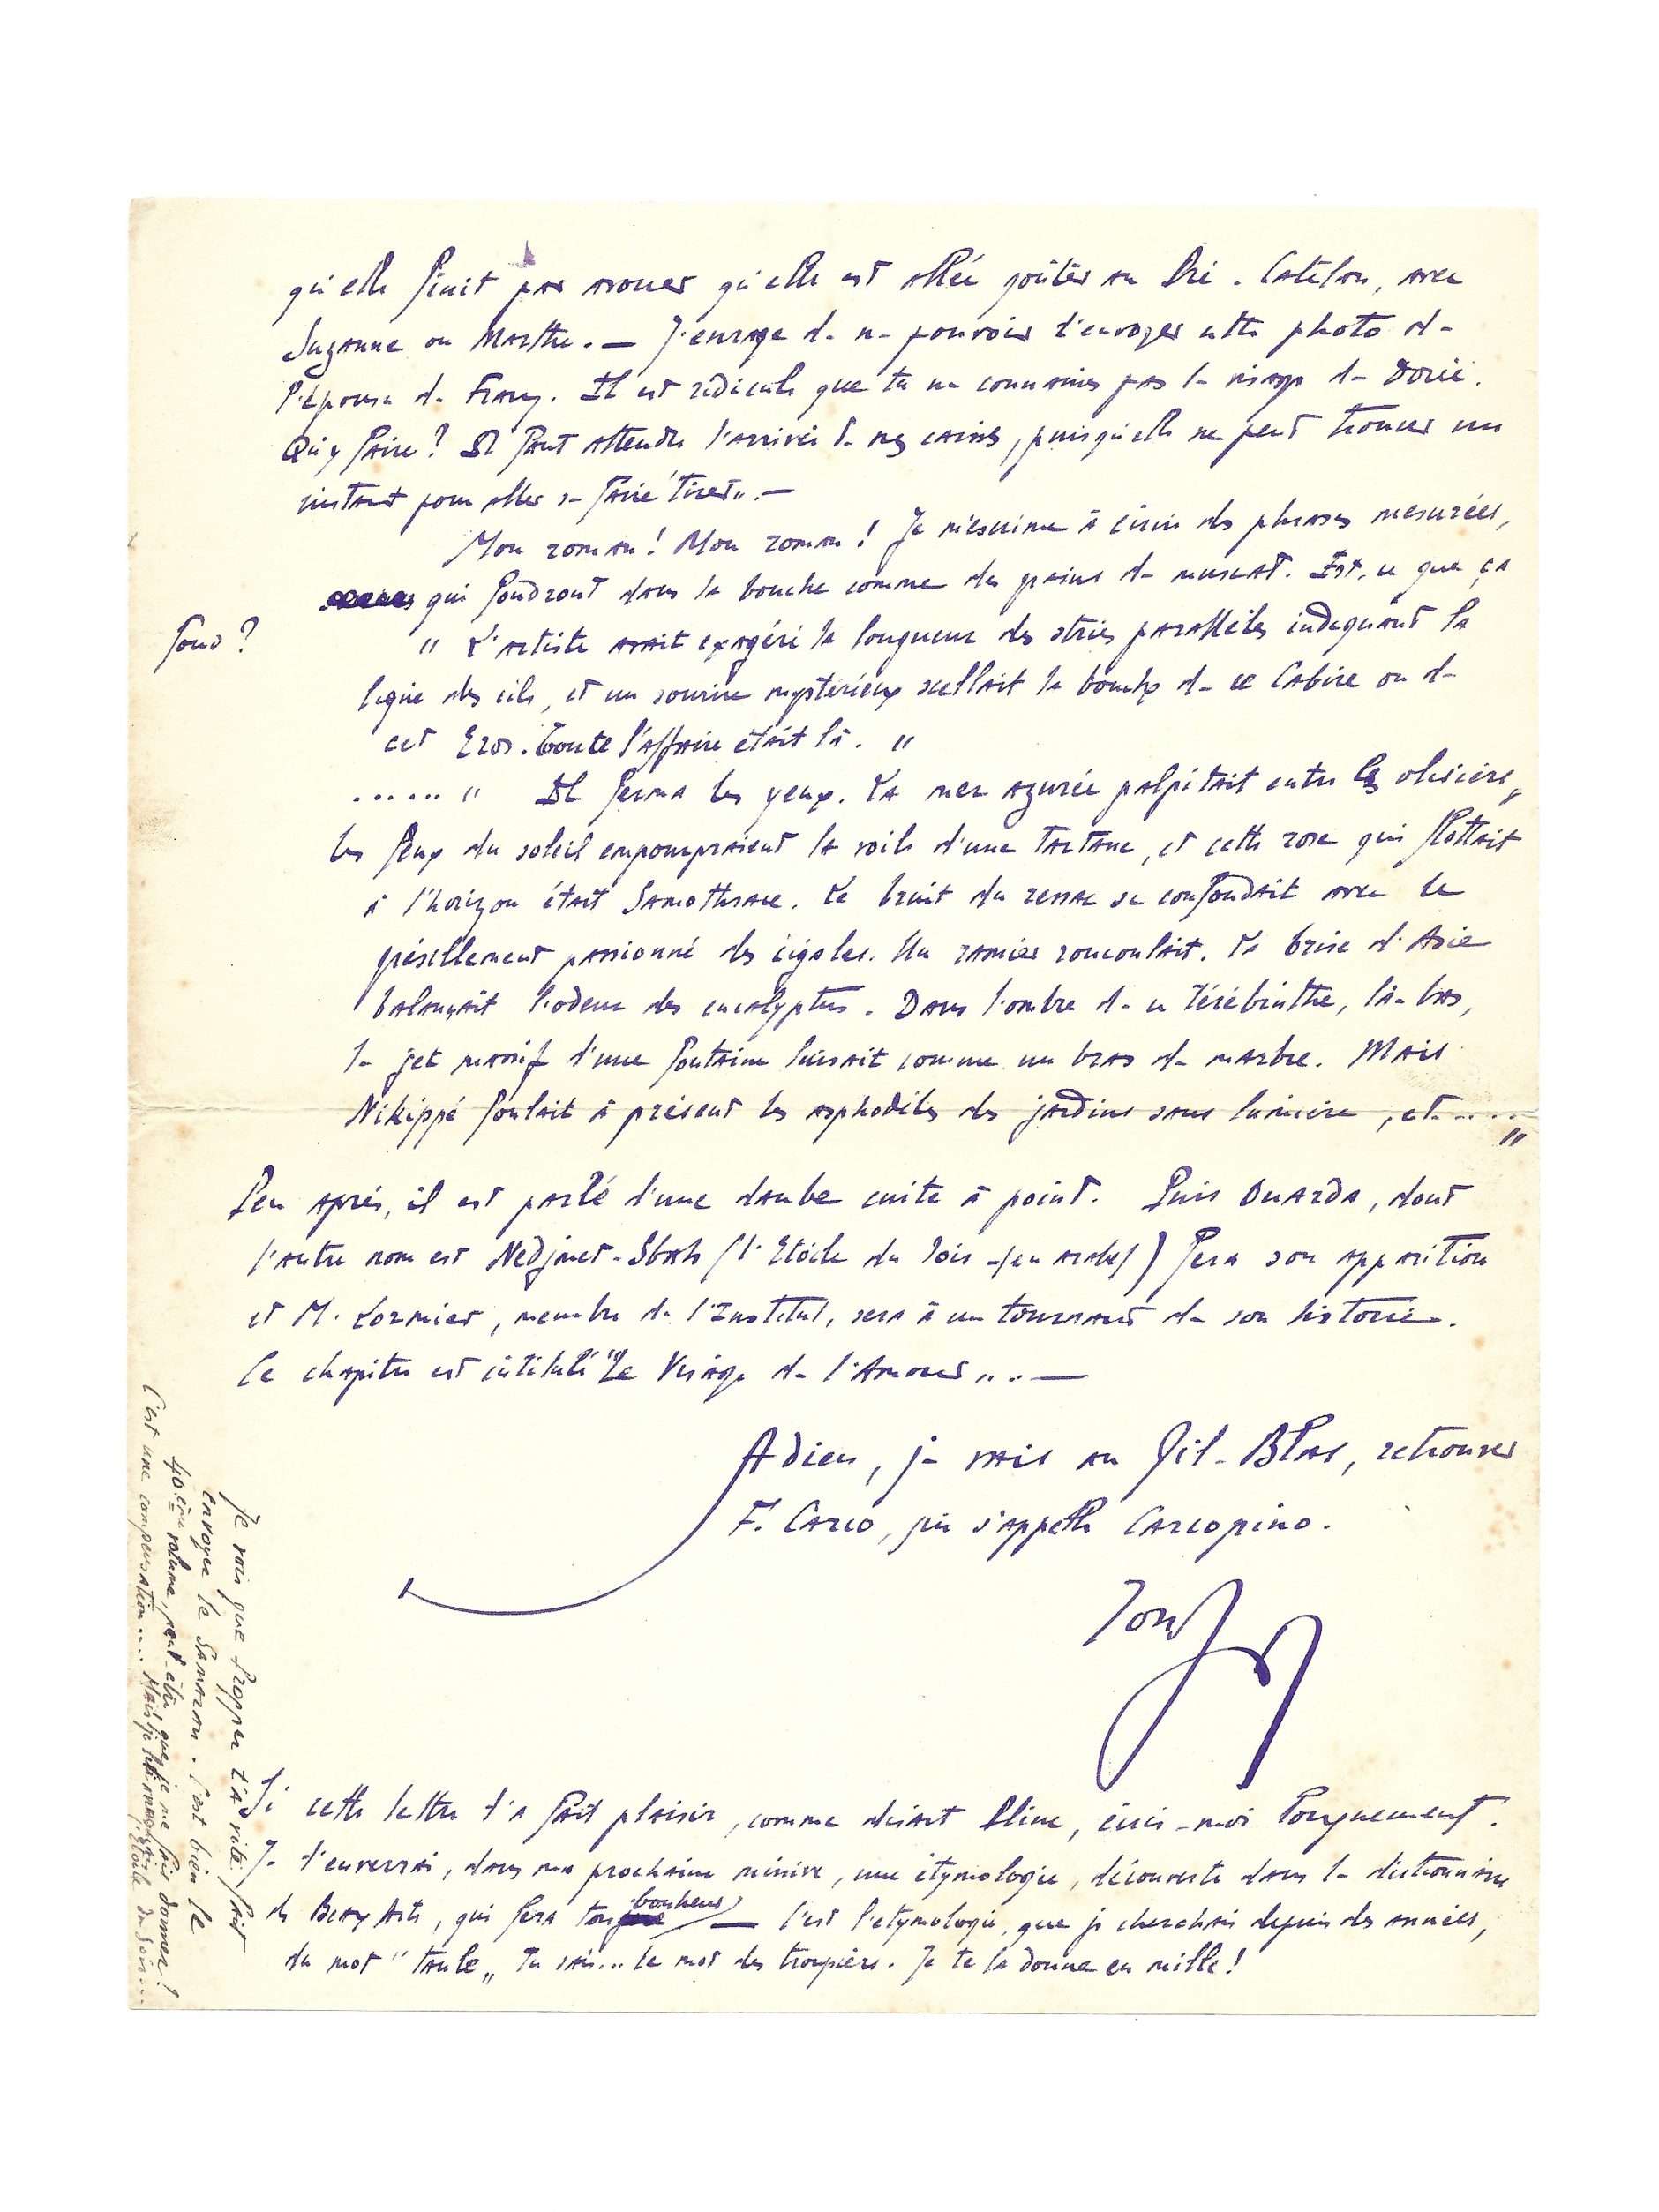 qu'elle finit par avouer qu'elle est allée goûter au Pré-Catelan, avec
Suzanne ou Marthe. — J'enrage de ne pouvoir t'envoyer cette photo de
l'épouse de Francy. Il est ridicule que tu ne connaisses pas le visage de Dorie.
Qu'y faire? Il faut attendre l'arrivée de nos, puisqu'elle ne peut trouver un
instant pour aller se faire "tirer". —
Mon roman! Mon roman! Je m'escrime à écrire des phrases mesurées,
qui fondront dans la bouche comme des grains de muscat. Est-ce que ça
fond?
" L'artiste avait exagéré la longueur des stries parallèles indiquant la
ligne des cils, et un sourire mystérieux scellait la bouche de ce Cabire ou de
cet Eros. Toute l'affaire était là. "
...... " Il ferma les yeux. La mer azurée palpitait entre les oliviers,
les feux du soleil empourpraient la voile d'une tartane, et cette rose qui flottait
à l'horizon était Samothrace. Le bruit du ressac se confondait avec le
grésillement passionné des cigales. Un ramier roucoulait. La brise d'Asie
balançait l'odeur des eucalyptus. Dans l'ombre de ce térébinthe, là-bas,
le jet massif d'une fontaine luisait comme un bras de marbre. Mais
Nikippé foulait à présent les asphodèles des jardins sans lumière, et ..... "
Peu après, il est parlé d'une daube cuite à point. Puis Ouarda, dont
l'autre nom est Nedjmet-Sbah (l'Etoile du soir - (en arabe)) fera son apparition
et M. Lormier, membre de l'Institut, sera à un tournant de son histoire.
Ce chapitre est intitulé "Le Visage de l'Amour". —
Adieu, je vais au Gil-Blas, retrouver
F. Carco, qui s'appelle Carcopino.
Ton
Si cette lettre t'a fait plaisir, comme disait Pline, écris-moi longuement.
Je t'enverrai, dans ma prochaine missive, une étymologie, découverte dans le dictionnaire
des Beaux Arts, qui fera ton bonheur — C'est l'étymologie, que je cherchais depuis des années,
du mot "taule" Tu sais... le mot des troupiers. Je te la donne en mille!
Je vois que Propper t'a vite fait
envoyer le Samazan. C'est bien le
40ème volume, peut-être que je me fais donner!
C'est une compensation .... Mais je l'Etoile du Soir...